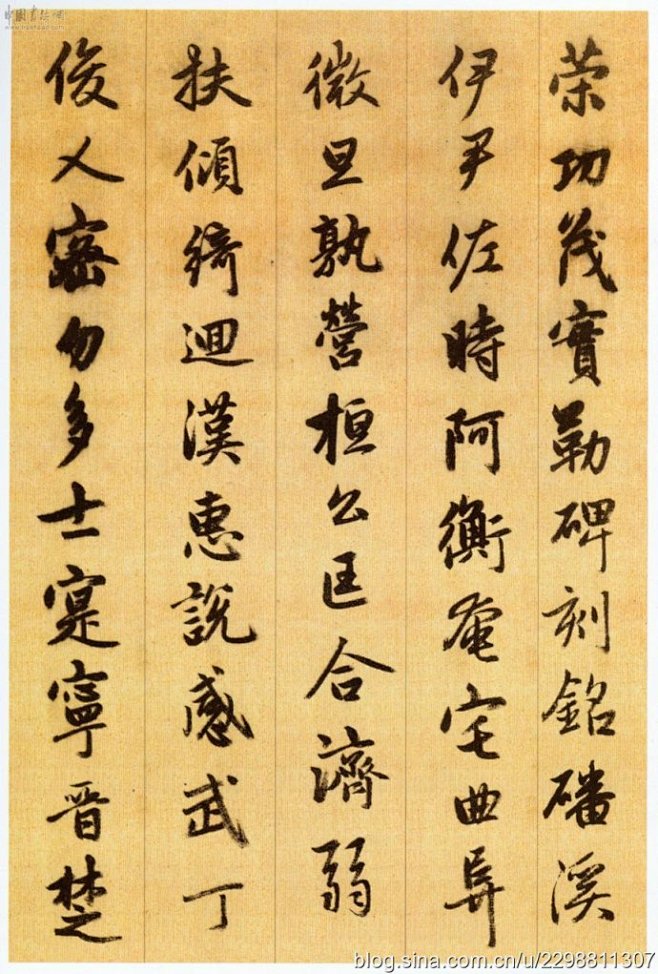 荣功茂實勒碑刻銘磻溪
伊尹佐時阿衡奄宅曲阜
微旦孰營桓公匡合濟弱
扶傾綺迴漢惠說感武丁
俊乂密勿多士寔寧晋楚
中國書法網
blog.sina.com.cn/u/2298811307